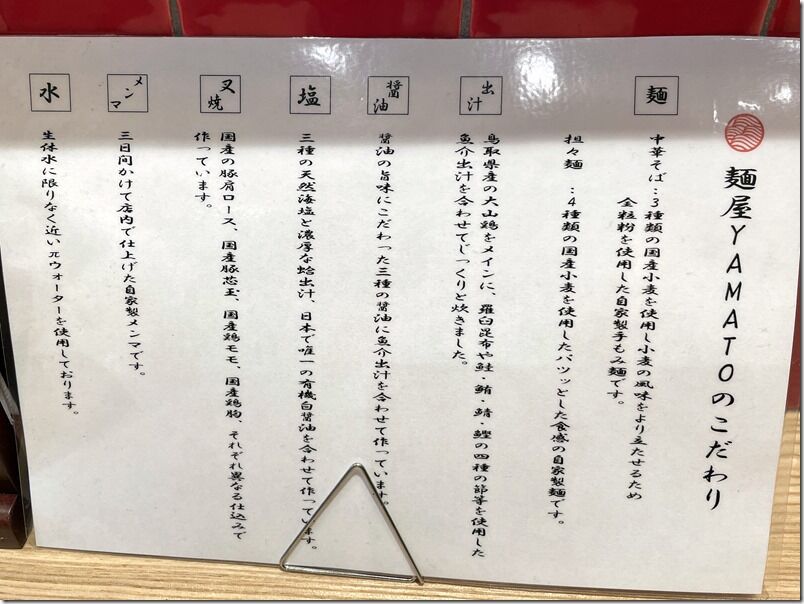 麺屋YAMATOのこだわり
麺
中華そば：3種類の国産小麦を使用し小麦の風味をより立たせるため
全粒粉を使用した自家製手もみ麺です。
担々麺　：4種類の国産小麦を使用したパツッとした食感の自家製麺です。
出汁
鳥取県産の大山鶏をメインに、羅臼昆布や鮭・鮪・鯖・鰹の四種の節等を使用した
魚介出汁を合わせてじっくりと炊きました。
醤油
醤油の旨味にこだわった三種の醤油に魚介出汁を合わせて作っています。
塩
三種の天然海塩と濃厚な蛤出汁、日本で唯一の有機白醤油を合わせて作っています。
叉焼
国産の豚肩ロース、国産豚芯玉、国産鶏モモ、国産鶏胸、それぞれ異なる仕込みで
作っています。
メンマ
三日間かけて店内で仕上げた自家製メンマです。
水
生体水に限りなく近いπウォーターを使用しております。